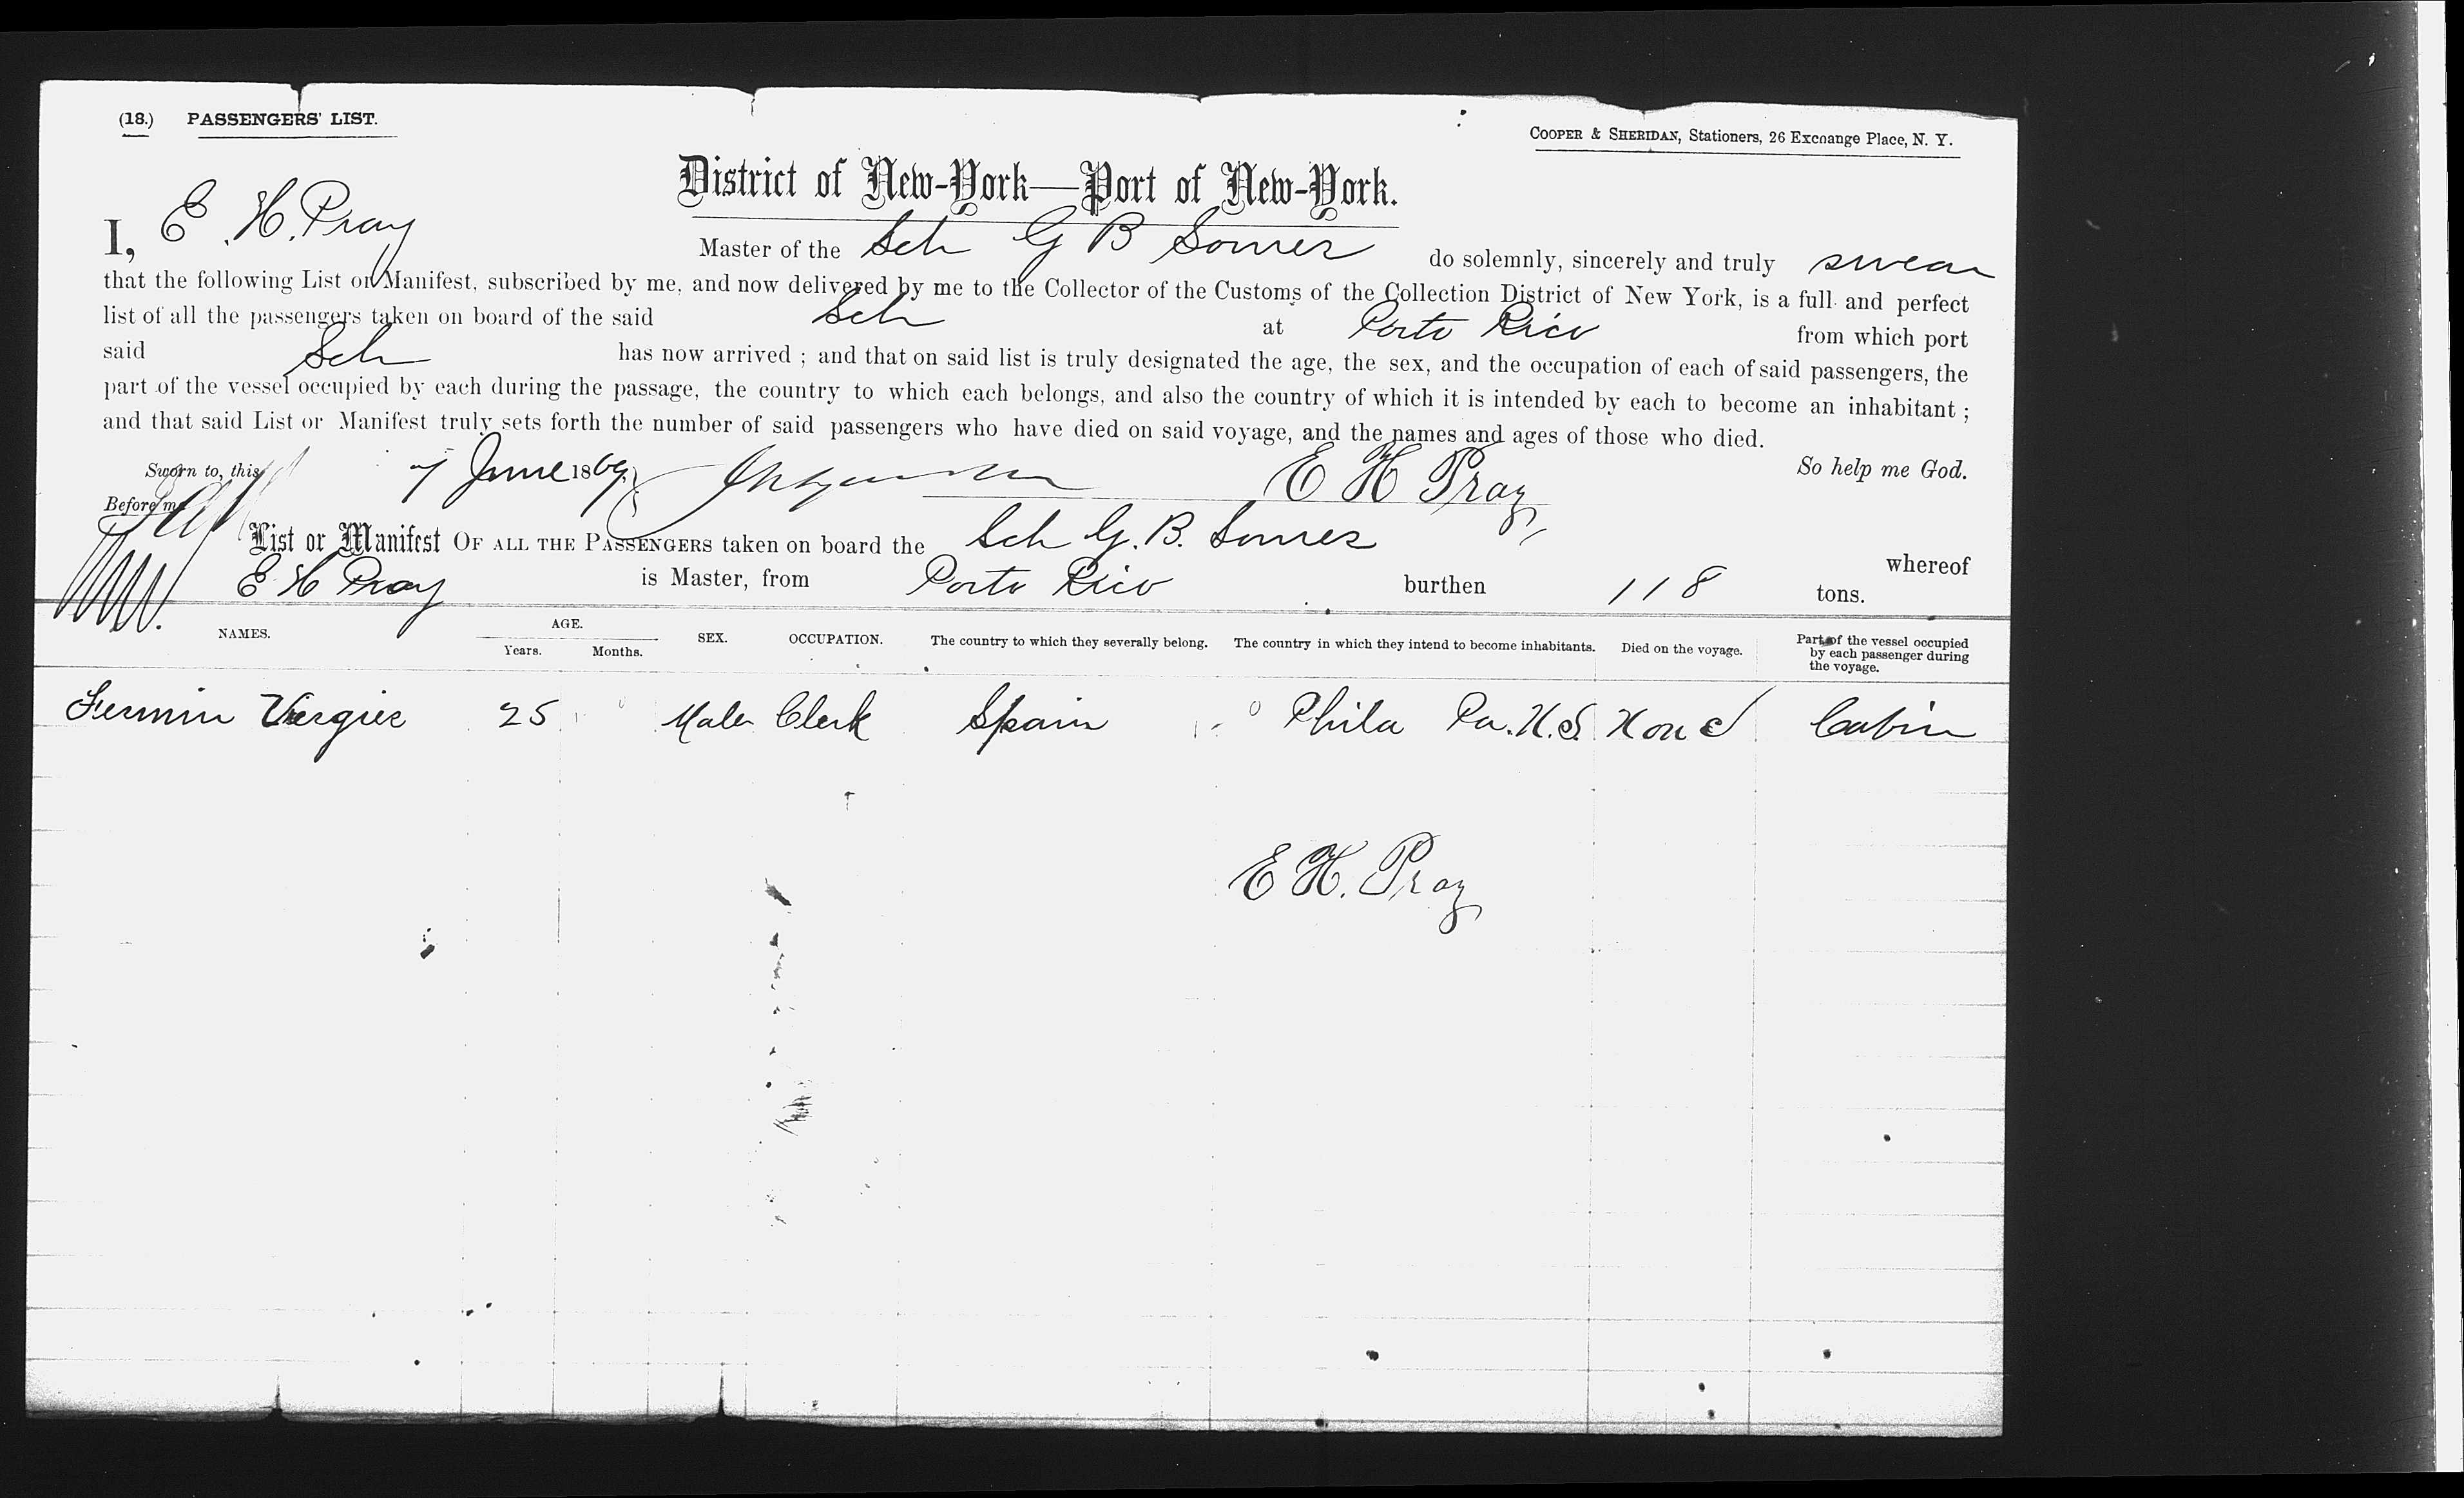 (18.) PASSENGERS' LIST.
COOPER & SHERIDAN, Stationers, 26 Exchange Place, N. Y.
District of New-York—Port of New-York.
I, E. H. Pray Master of the Sch G B Somes do solemnly, sincerely and truly swear
that the following List or Manifest, subscribed by me, and now delivered by me to the Collector of the Customs of the Collection District of New York, is a full and perfect
list of all the passengers taken on board of the said Sch at Porto Rico from which port
said Sch has now arrived ; and that on said list is truly designated the age, the sex, and the occupation of each of said passengers, the
part of the vessel occupied by each during the passage, the country to which each belongs, and also the country of which it is intended by each to become an inhabitant ;
and that said List or Manifest truly sets forth the number of said passengers who have died on said voyage, and the names and ages of those who died.
Sworn to, this 7 June 1869 E H Pray So help me God.
Before me
List or Manifest OF ALL THE PASSENGERS taken on board the Sch G. B. Somes whereof
E H Pray is Master, from Porto Rico burthen 118 tons.
NAMES. AGE. Years. Months. SEX. OCCUPATION. The country to which they severally belong. The country in which they intend to become inhabitants. Died on the voyage. Part of the vessel occupied by each passenger during the voyage.
Fermin Vergies 25 Male Clerk Spain Phila Pa. U.S. None Cabin
E H. Pray